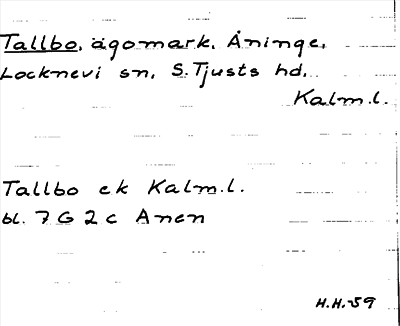 Tallbo, ägomark, Åninge,
Locknevi sn, S. Tjusts hd,
Kalm.l.
Tallbo ek Kalm.l.
bl. 7 G 2 c Anen
H.H.-59